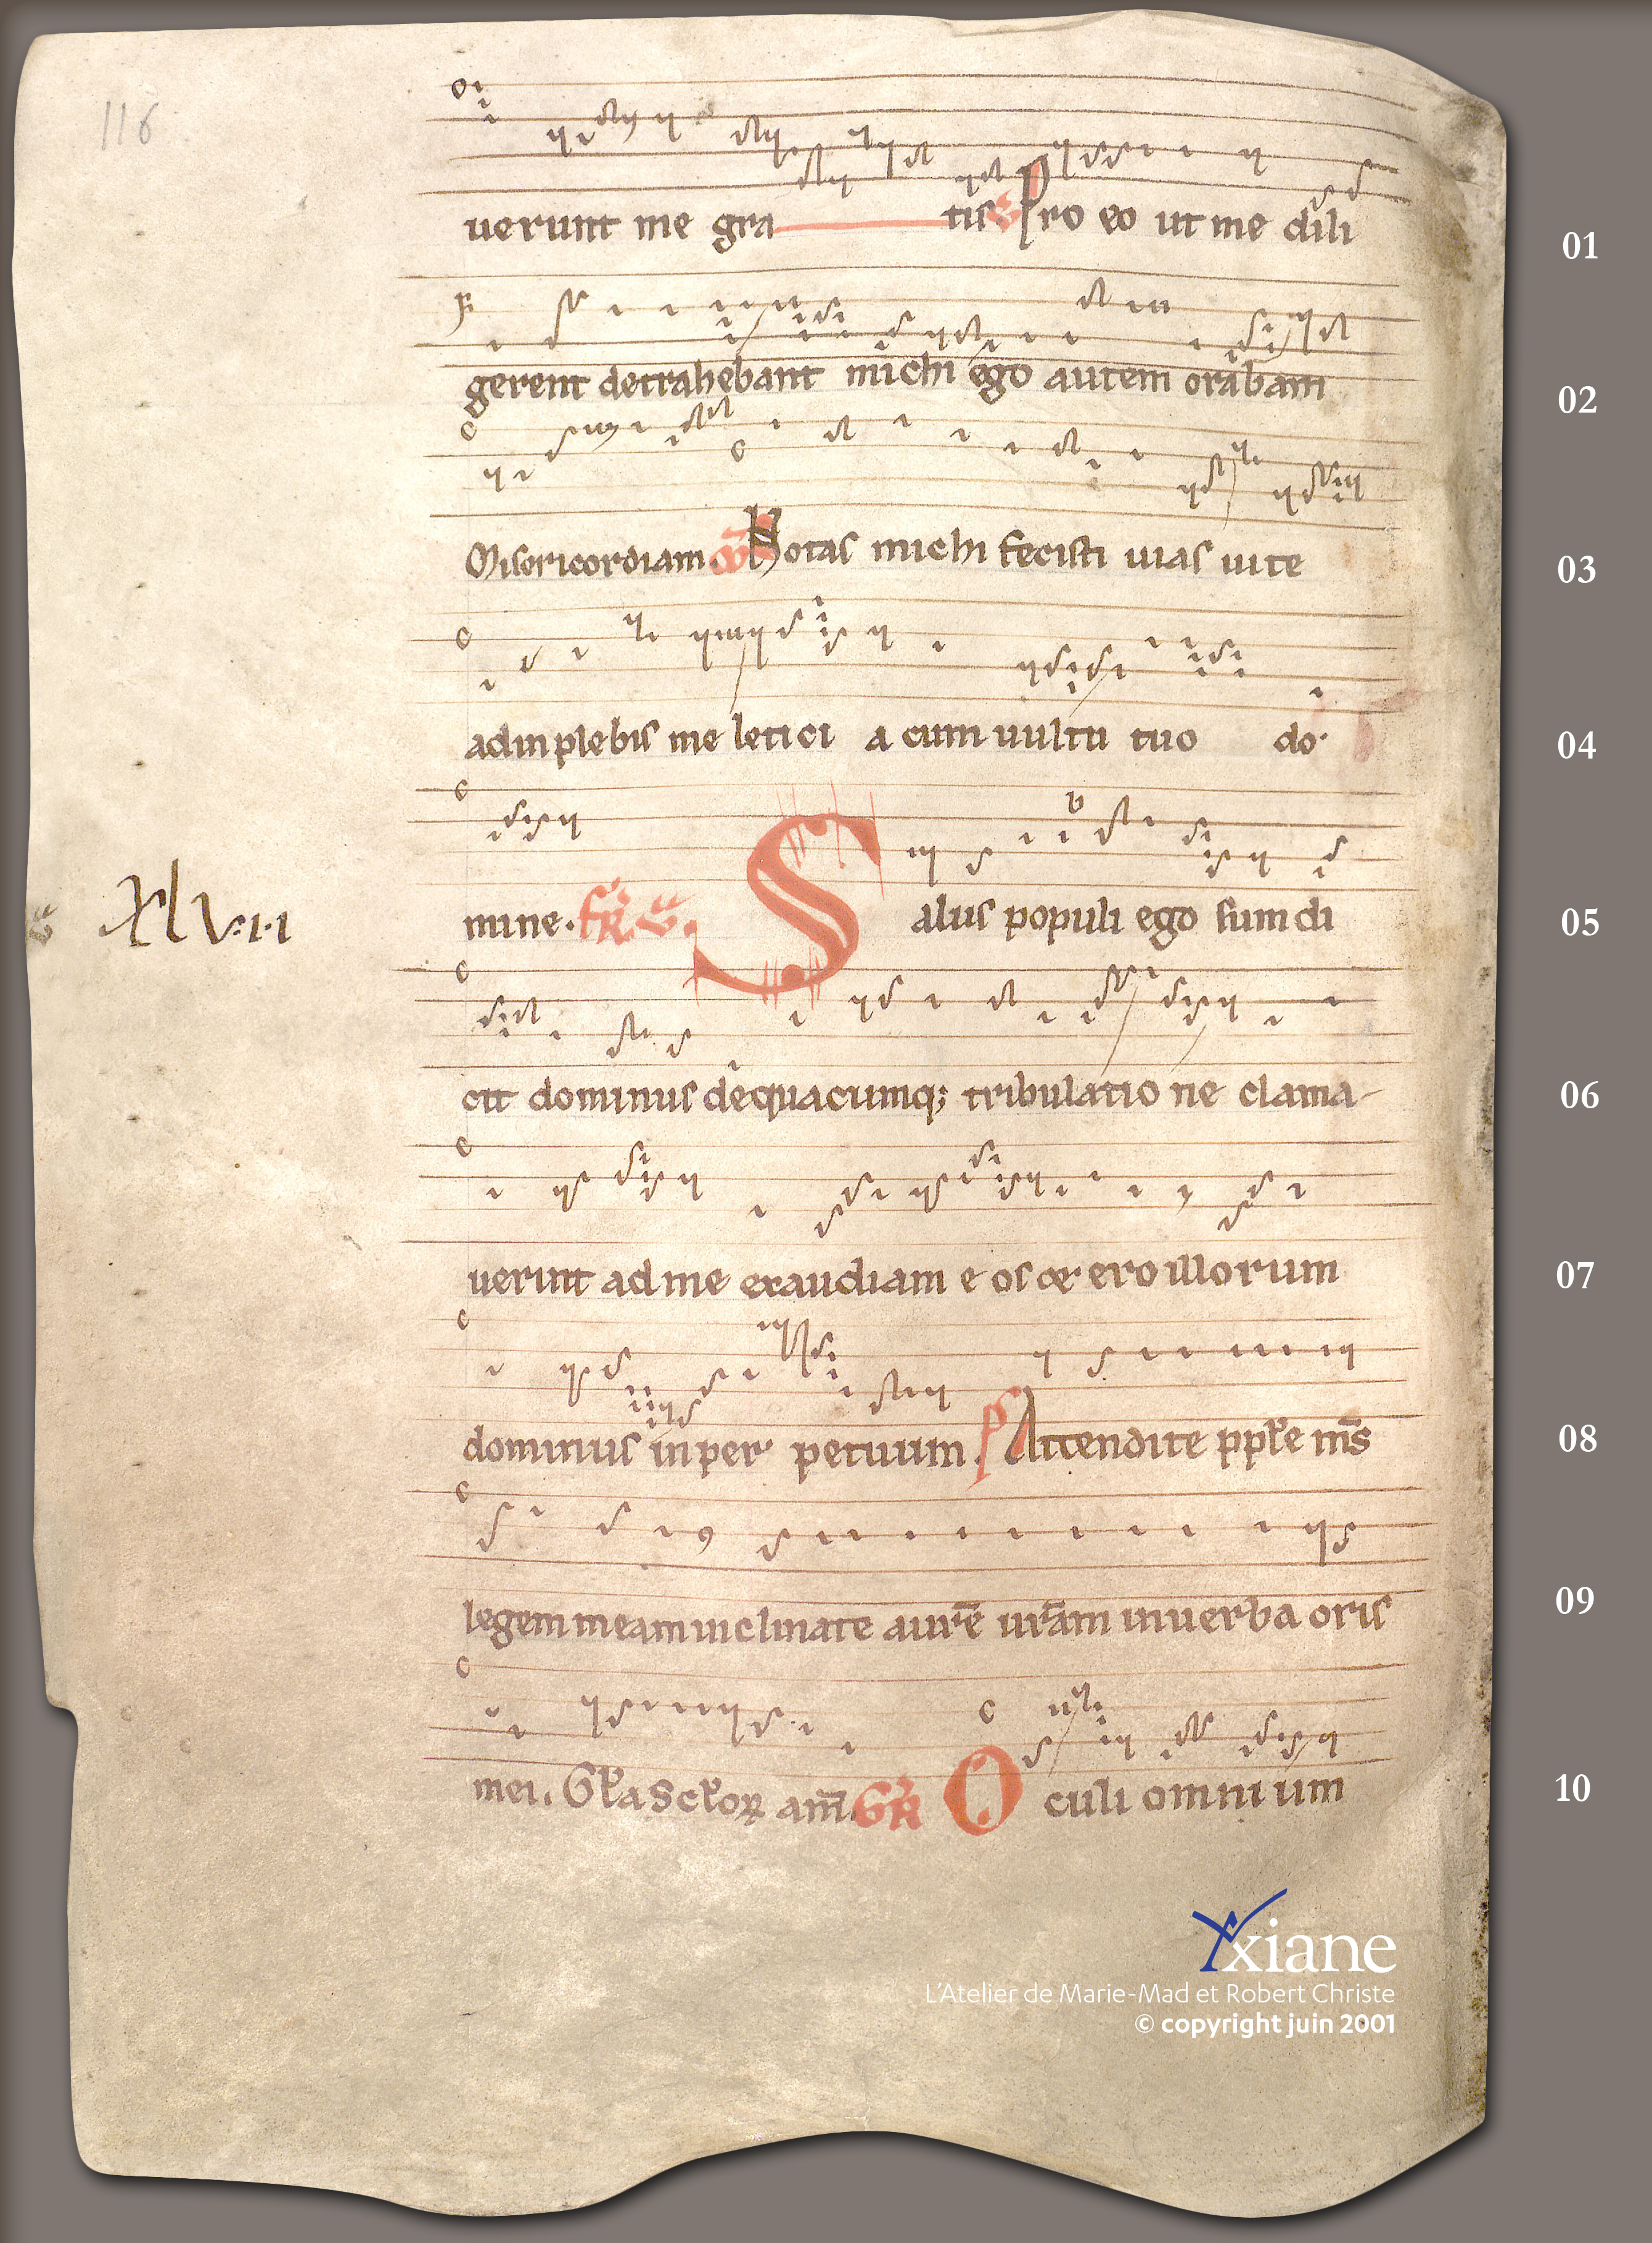 116
uerunt me gra tis. V Pro eo ut me dili 01
gerent detrahebant michi ego autem orabam 02
Misericordiam. co Notas michi fecisti uias uite 03
adinplebis me letici a cum uultu tuo do 04
XlV.i.i mine. fr. S alus populi ego sum di 05
cit dominus de quacumq; tribulatio ne clama 06
uerint ad me exaudiam e os & ero illorum 07
dominus in per petuum. ps Attendite pple ms 08
legem meam inclinate aure uram inuerba oris 09
mei. Gla Sclor am. GR O culi omni um 10
Yxiane
L'Atelier de Marie-Mad et Robert Christe
© copyright juin 2001